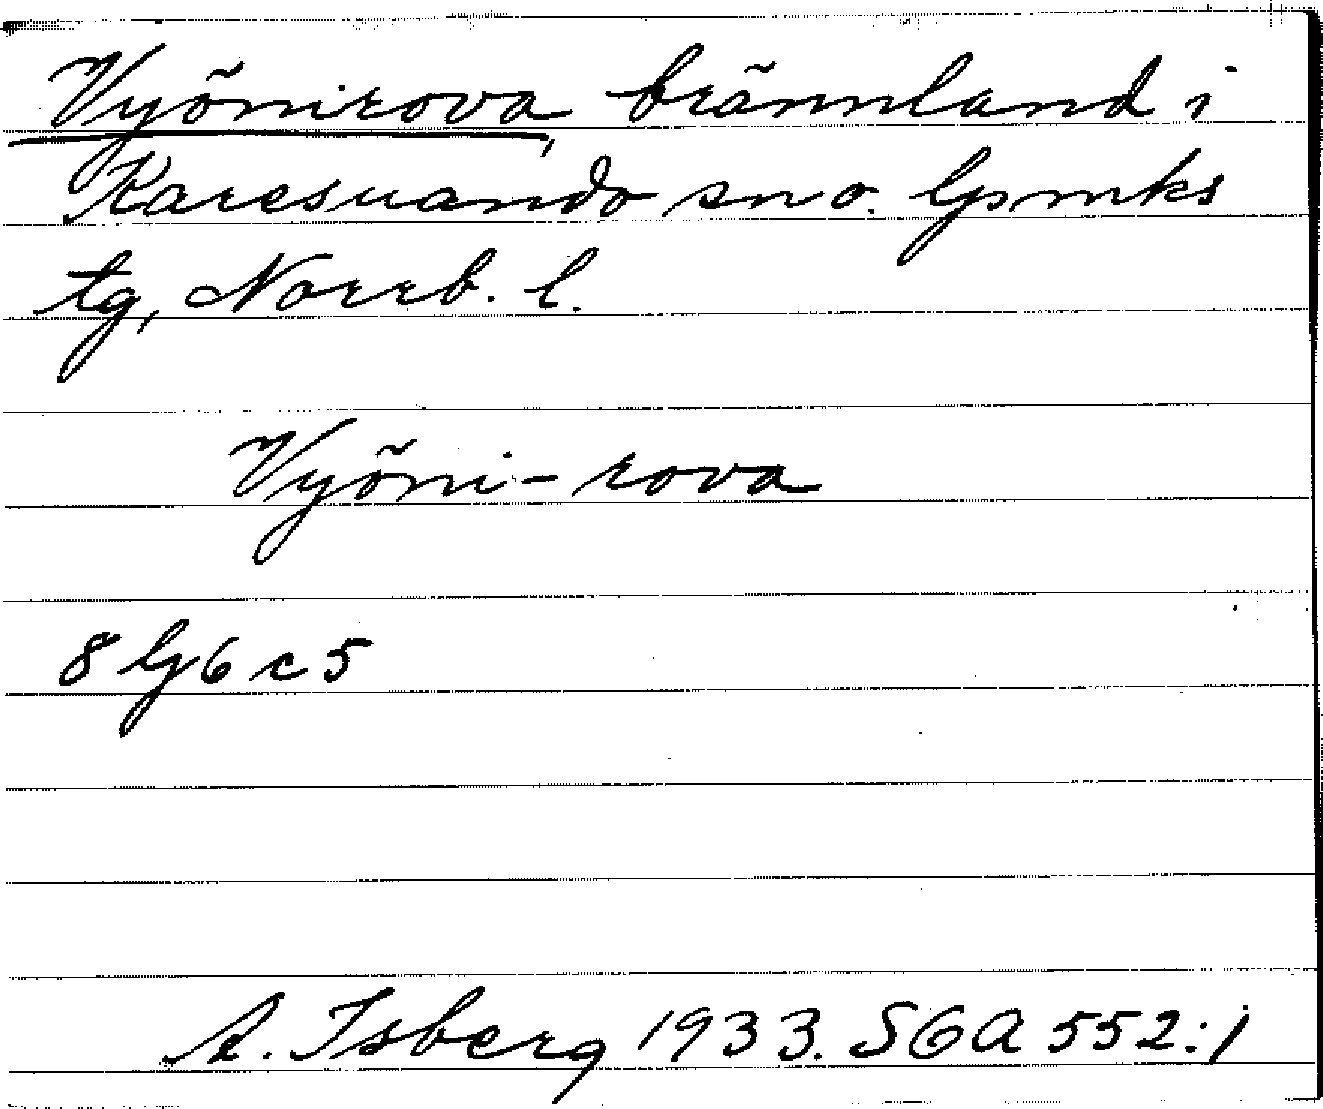 Vyönirova, brännland i
Karesuando sn o. lpmks
tg, Norrb. l.
Vyöni-rova
8 g 6 c 5
A. Isberg 1933. SGA 552:1